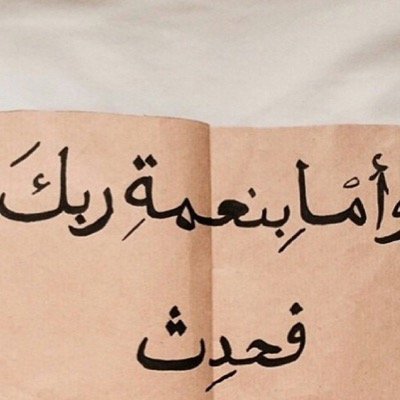 وأمْا بِنعمةِ ربكَ
فحدِث